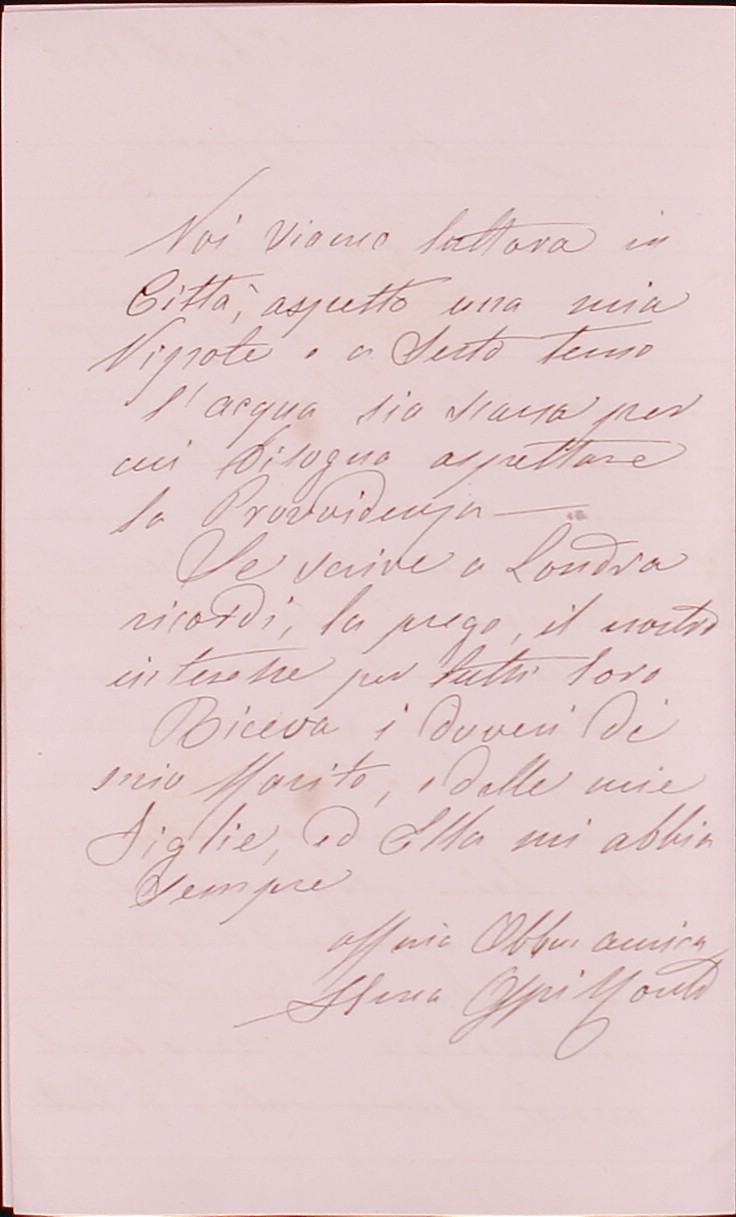 Noi siamo tuttora in
Città, aspetto una mia
Nipote e a Sesto temo
l'acqua sia scarsa per
cui bisogna aspettare
la Provvidenza —
Se scrive a Londra
ricordi, la prego, il nostro
interesse per tutti loro
Riceva i doveri di
mio Marito, e delle mie
Figlie, ed Ella mi abbia
sempre
affma Obbma amica
Elena